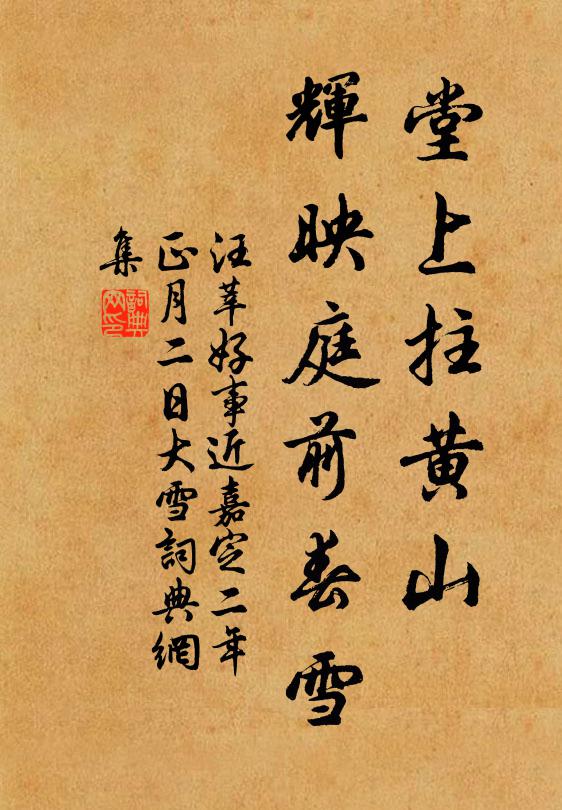 堂上拄黄山
輝映庭前春雪
汪莘好事近嘉定二年
正月二日大雪詞典網
集
詞典网印